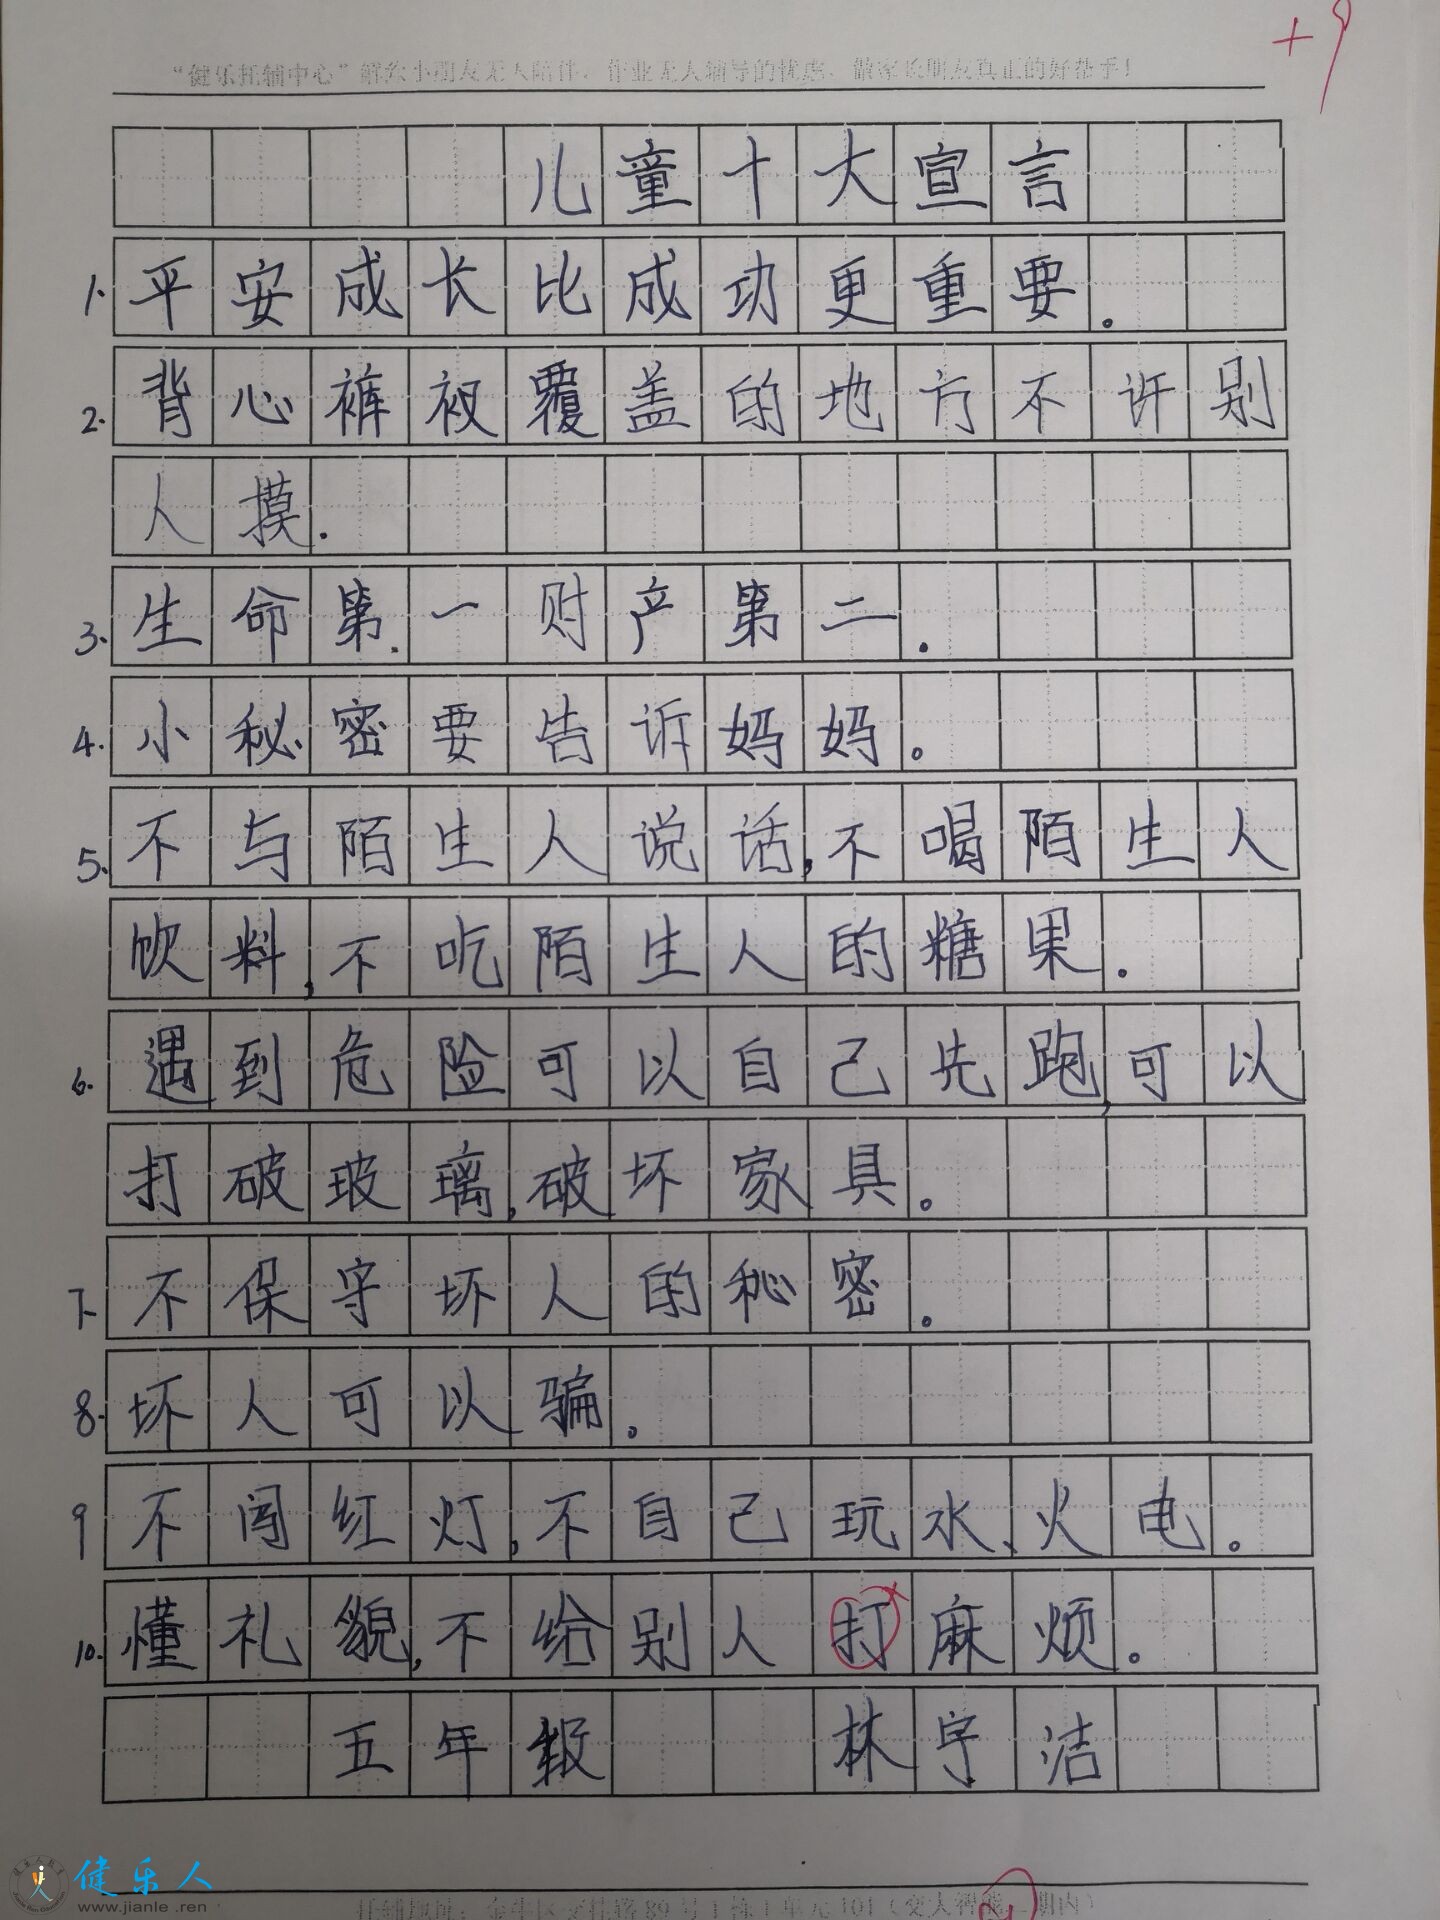 +9
“健乐托辅中心”解您小朋友无人陪伴、作业无人辅导的忧虑，做家长朋友真正的好帮手！
儿童十大宣言
1. 平安成长比成功更重要。
2. 背心裤衩覆盖的地方不许别
人摸.
3. 生命第一财产第二.
4. 小秘密要告诉妈妈。
5. 不与陌生人说话,不喝陌生人
饮料,不吃陌生人的糖果.
6. 遇到危险可以自己先跑,可以
打破玻璃,破坏家具。
7. 不保守坏人的秘密。
8. 坏人可以骗。
9 不闯红灯,不自己玩水、火电。
10. 懂礼貌,不给别人打麻烦。
五年级 林宇洁
健乐人
www.jianle.ren